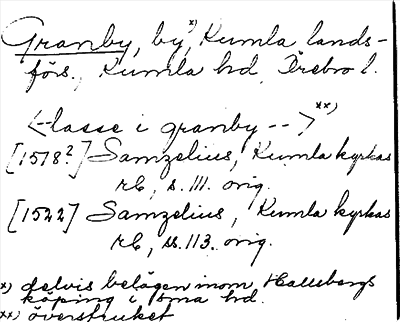 Granby, by,*) Kumla lands-
förs., Kumla hd, Örebro l.
<--lasse i granby -->**)
[1518?] Samzelius, Kumla kyrkas
rb, s. 111. orig.
[1522] Samzelius, Kumla kyrkas
rb, ss. 113. orig.
*) delvis belägen inom Hallsbergs
köping i sma hd.
**) överstruket